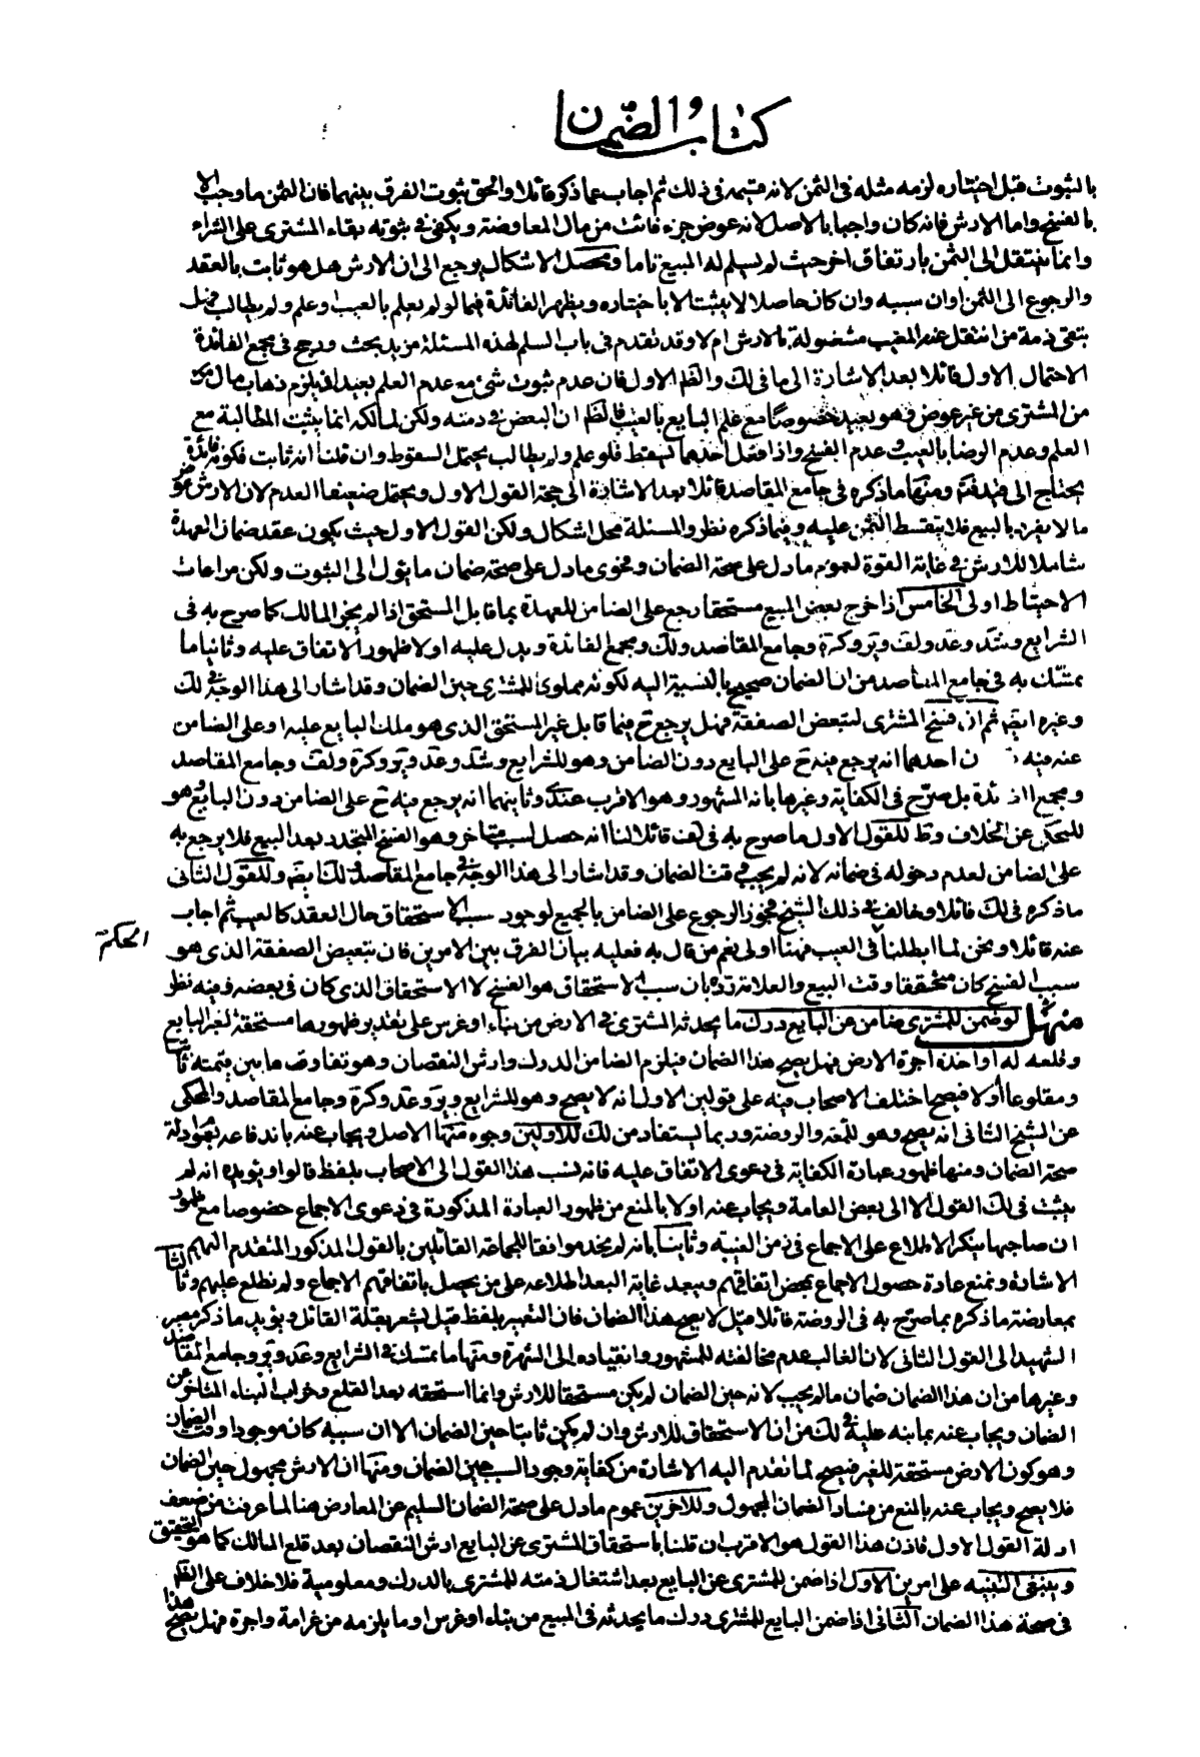 كتاب الضمان
بالثبوت قبل اختياره لزمه مثله فى الثمن لانه قسيمه فى ذلك ثم اجاب عما ذكره قائلا والحق ثبوت الفرق بينهما فان الثمن ما وجب الا
بالفسخ واما الارش فانه كان واجبا بالاصل لانه عوض جزء فائت من مال المعاوضة ويكفى فى ثبوته بقاء المشترى على الشراء
وانما ينتقل الى الثمن بارتفاق اخر حيث لم يسلم له المبيع تاما ومحصل الاشكال يرجع الى ان الارش هل هو ثابت بالعقد
والرجوع الى الثمن او ان سببه وان كان حاصلا لا يثبت الا باختياره ويظهر الفائدة فيما لو لم يعلم بالعيب او علم ولم يطالب فهل
تبقى ذمة من انتقل عنه المعيب مشغولة بالارش ام لا وقد تقدم فى باب السلم لهذه المسئلة مزيد بحث ورجح فى مجمع الفائدة
الاحتمال الاول قائلا بعد الاشارة الى ما فى لك والظ الاول فان عدم ثبوت شئ مع عدم العلم بعيد اذ يلزم ذهاب مال
من المشترى من غير عوض وهو بعيد خصوصا مع علم البايع بالعيب فالظ ان البعض فى ذمته ولكن لمالكه انما يثبت المطالبة مع
العلم وعدم الرضا بالعيب وعدم الفسخ واذا فعل احدهما سقط فلو علم ولم يطالب يحتمل السقوط وان قلنا انه ثابت فكونه
يحتاج الى ومنها ما ذكره فى جامع المقاصد قائلا بعد الاشارة الى حجة القول الاول ويحتمل ضعيفا العدم لان الارش
ما لا يفرد بالبيع فلا يتقسط الثمن عليه وفيما ذكره نظر والمسئلة محل اشكال ولكن القول الاول حيث يكون عقد ضمان العهدة
شاملا للارش فى غاية القوة لعموم ما دل على صحة الضمان وفحوى ما دل على صحة ضمان ما يؤل الى الثبوت ولكن مراعات
الاحتياط اولى الخامس اذا خرج بعض المبيع مستحقا رجع على الضامن للعهدة بما قابل المستحق اذا لم يجز المالك كما صرح به فى
الشرايع وشد وعد ولف وير وكرة وجامع المقاصد ولك ومجمع الفائدة ويدل عليه اولا ظهور الاتفاق عليه وثانيا ما
تمسك به فى جامع المقاصد من ان الضمان صحيح بالنسبة اليه لكونه مملوكا للمشترى حين الضمان وقد اشار الى هذا الوجه فى لك
وغيره ايضا ثم ان فسخ المشترى لتبعض الصفقة فهل يرجع ح فيما قابل غير المستحق الذى هو ملك البايع عليه او على الضامن
عنه فيه ن احدهما انه يرجع فيه ح على البايع دون الضامن وهو للشرايع وشد وعد وير وكرة ولف وجامع المقاصد
ومجمع ئدة بل صرح فى الكفاية وغيرها بانه المشهور وهو الاقرب عندى وثانيهما انه يرجع فيه ح على الضامن دون البايع وهو
للمحكى عن الخلاف وط للقول الاول ما صرح به فى لف قائلا لنا انه حصل لسبب متاخر وهو الفسخ المتجدد بعد البيع فلا يرجع به
على الضامن لعدم دخوله فى ضمانه لانه لم يجب وقت الضمان وقد اشار الى هذا الوجه فى جامع المقاصد ولك ايضا وللقول الثانى
ما ذكره فى لك قائلا وخالف فى ذلك الشيخ فجوز الرجوع على الضامن بالجميع لوجود سبب الاستحقاق حال العقد كالعيب ثم اجاب
عنه قائلا ونحن لما ابطلنا الحكم فى العيب فهنا اولى نعم من قال به فعليه بيان الفرق بين الامرين فان تبعيض الصفقة الذى هو
سبب الفسخ كان متحققا وقت البيع والعلامة رده بان سبب الاستحقاق هو الفسخ لا الاستحقاق الذى كان فى بعضه وفيه نظر
منهل لو ضمن للمشترى ضامن عن البايع درك ما يحدثه المشترى فى الارض من بناء او غرس على تقدير ظهورها مستحقة لغير البايع
وقلعه له او اخذه اجرة الارض فهل يصح هذا الضمان فيلزم الضامن الدرك وارش النقصان وهو تفاوت ما بين قيمته ثابتا
ومقلوعا او لا فيصح اختلف الاصحاب فيه على قولين الاول انه لا يصح وهو للشرايع وير وعد وكرة وجامع المقاصد والمحكى
عن الشيخ الثانى انه يصح وهو للمعة والروضة وربما يستفاد من لك للاولين وجوه منها الاصل ويجاب عنه باندفاعه بعموم ادلة
صحة الضمان ومنها ظهور عبارة الكفاية فى دعوى الاتفاق عليه فانه نسب هذا القول الى الاصحاب بلفظ قالوا ويؤيده انه لم
يثبت فى لك القول الا الى بعض العامة ويجاب عنه اولا بالمنع من ظهور العبارة المذكورة فى دعوى الاجماع خصوصا مع ظهور
ان صاحبها ينكر الاطلاع على الاجماع فى زمن الغيبة وثانيا بانه لم يجد موافقا للجماعة القائلين بالقول المذكور المتقدم اليهم
الاشارة ونمنع عادة حصول الاجماع بمحض اتفاقهم ويبعد غاية البعد اطلاعه على من يحصل باتفاقهم الاجماع ولم نطلع عليهم وثالثا
بمعارضة ما ذكره بما صرح به فى الروضة قائلا قيل لا يصح هذا الضمان فان التعبير بلفظ قيل يشعر بقلة القائل ويؤيد ما ذكر مصير
الشهيد الى القول الثانى لان الغالب عدم مخالفته للمشهور وانقياده الى الشهرة ومنها ما تمسك فى الشرايع وعد وير وجامع المقاصد
وغيرها من ان هذا الضمان ضمان ما لم يجب لانه حين الضمان لم يكن مستحقا للارش وانما استحقه بعد القلع وخراب البناء المتاخر عن
الضمان ويجاب عنه بما نبه عليه فى لك من ان الاستحقاق للارش وان لم يكن ثابتا حين الضمان الا ان سببه كان موجودا وقت الضمان
وهو كون الارض مستحقة للغير فيصح لما تقدم اليه الاشارة من كفاية وجود السبب حين الضمان ومنها ان الارش مجهول حين الضمان
فلا يصح ويجاب عنه بالمنع من فساد الضمان المجهول وللاخرين عموم ما دل على صحة الضمان السليم عن المعارض هنا لما عرفت من ضعف
ادلة القول الاول فاذن هذا القول هو الاقرب ان قلنا باستحقاق المشترى عن البايع ارش النقصان بعد قلع المالك كما هو التحقيق
وينبغى التنبيه على امرين الاول اذا ضمن للمشترى عن البايع بعد اشتغال ذمته للمشترى بالدرك ومعلومية فلا خلاف على الظ
فى صحة هذا الضمان الثانى اذا ضمن البايع للمشترى درك ما يحدثه فى المبيع من بناء او غرس او ما يلزمه من غرامة واجرة فهل يصح هذا